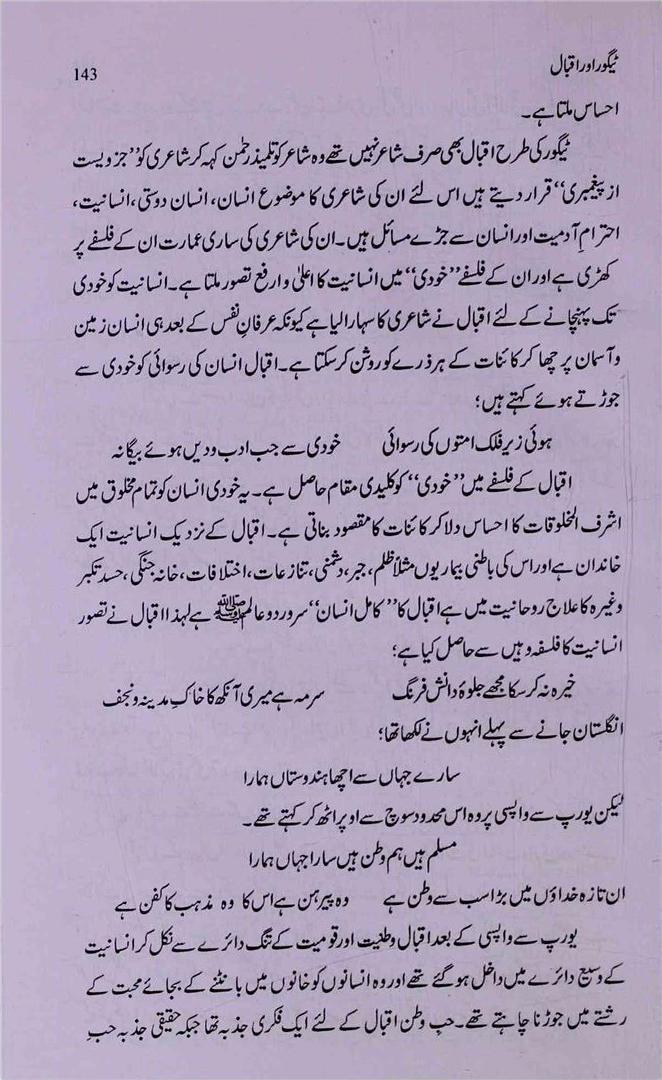 ٹیگور اور اقبال
143
احساس ملتا ہے۔
ٹیگور کی طرح اقبال بھی صرف شاعر نہیں تھے وہ شاعر کو تلمیذ رحمٰن کہہ کر شاعری کو ’’جزویست
از پیغمبری‘‘ قرار دیتے ہیں اس لئے ان کی شاعری کا موضوع انسان، انسان دوستی، انسانیت،
احترامِ آدمیت اور انسان سے جڑے مسائل ہیں۔ ان کی شاعری کی ساری عمارت ان کے فلسفے پر
کھڑی ہے اور ان کے فلسفے ’’خودی‘‘ میں انسانیت کا اعلیٰ وارفع تصور ملتا ہے۔ انسانیت کو خودی
تک پہنچانے کے لئے اقبال نے شاعری کا سہارا لیا ہے کیونکہ عرفانِ نفس کے بعد ہی انسان زمین
و آسمان پر چھا کر کائنات کے ہر ذرے کو روشن کر سکتا ہے۔ اقبال انسان کی رسوائی کو خودی سے
جوڑتے ہوئے کہتے ہیں؛
ہوئی زیر فلک امتوں کی رسوائی خودی سے جب ادب و دیں ہوئے بیگانہ
اقبال کے فلسفے میں ’’خودی‘‘ کو کلیدی مقام حاصل ہے۔ یہ خودی انسان کو تمام مخلوق میں
اشرف المخلوقات کا احساس دلا کر کائنات کا مقصود بناتی ہے۔ اقبال کے نزدیک انسانیت ایک
خاندان ہے اور اس کی باطنی بیماریوں مثلاً ظلم، جبر، دشمنی، تنازعات، اختلافات، خانہ جنگی، حسد تکبر
وغیرہ کا علاج روحانیت میں ہے اقبال کا ’’کامل انسان‘‘ سرور دو عالم ﷺ ہے لہذا اقبال نے تصور
انسانیت کا فلسفہ وہیں سے حاصل کیا ہے؛
خیرہ نہ کر سکا مجھے جلوۂ دانش فرنگ سرمہ ہے میری آنکھ کا خاکِ مدینہ و نجف
انگلستان جانے سے پہلے انہوں نے لکھا تھا؛
سارے جہاں سے اچھا ہندوستاں ہمارا
لیکن یورپ سے واپسی پر وہ اس محدود سوچ سے اوپر اٹھ کر کہتے تھے۔
مسلم ہیں ہم وطن ہیں سارا جہاں ہمارا
ان تازہ خداؤں میں بڑا سب سے وطن ہے وہ پیرہن ہے اس کا وہ مذہب کا کفن ہے
یورپ سے واپسی کے بعد اقبال وطنیت اور قومیت کے تنگ دائرے سے نکل کر انسانیت
کے وسیع دائرے میں داخل ہو گئے تھے اور وہ انسانوں کو خانوں میں بانٹنے کے بجائے محبت کے
رشتے میں جوڑنا چاہتے تھے۔ حب وطن اقبال کے لئے ایک فکری جذبہ تھا جبکہ حقیقی جذبہ حبِ